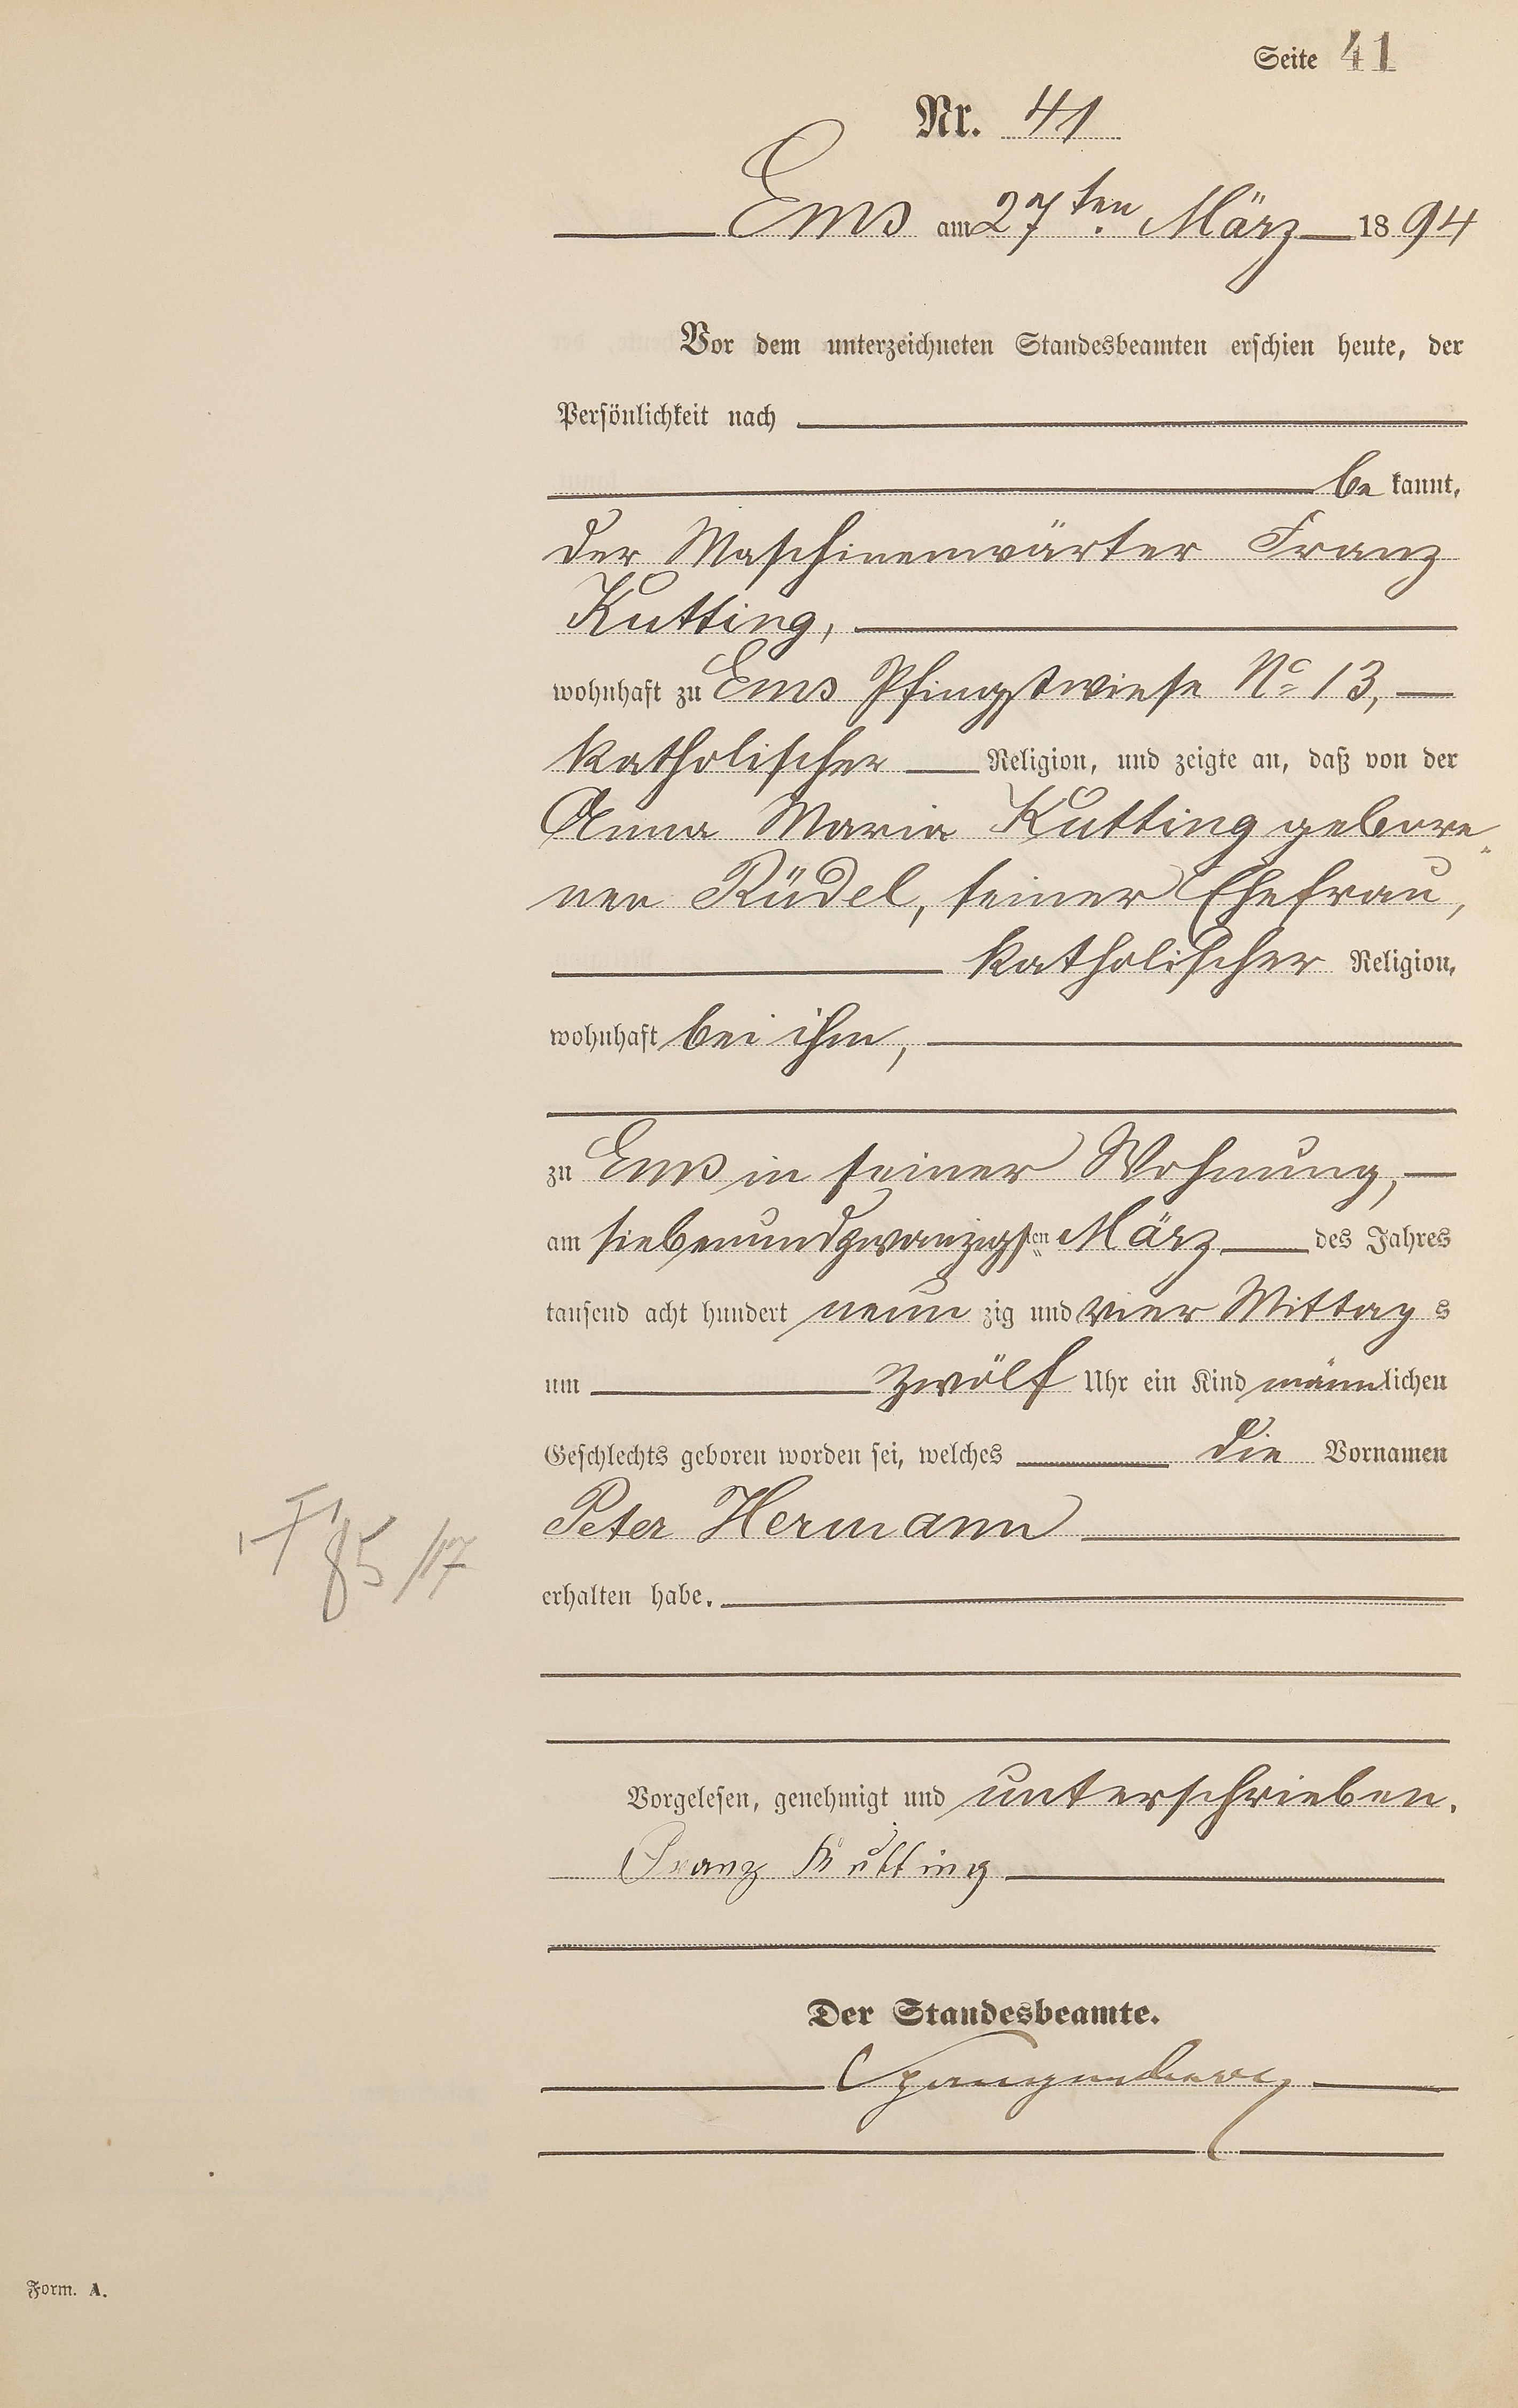 Seite 41
Nr. 41
Ems am 27ten März 1894
Vor dem unterzeichneten Standesbeamten erschien heute, der
Persönlichkeit nach
be kannt,
der Maschinenwärter Franz
Kutting,
wohnhaft zu Ems Pfingstwiese No 13,
katholischer Religion, und zeigte an, daß von der
Anna Maria Kutting gebore
nen Rüdel, seiner Ehefrau,
katholischer Religion,
wohnhaft bei ihm,
zu Ems in seiner Wohnung,
am siebenundzwanzigsten März des Jahres
tausend acht hundert neun zig und vier Mittag s
um zwölf Uhr ein Kind männlichen
Geschlechts geboren worden sei, welches die Vornamen
Peter Hermann
85/17
erhalten habe.
Vorgelesen, genehmigt und unterschrieben.
Franz Kutting
Der Standesbeamte.
Spangenberg
Form. A.